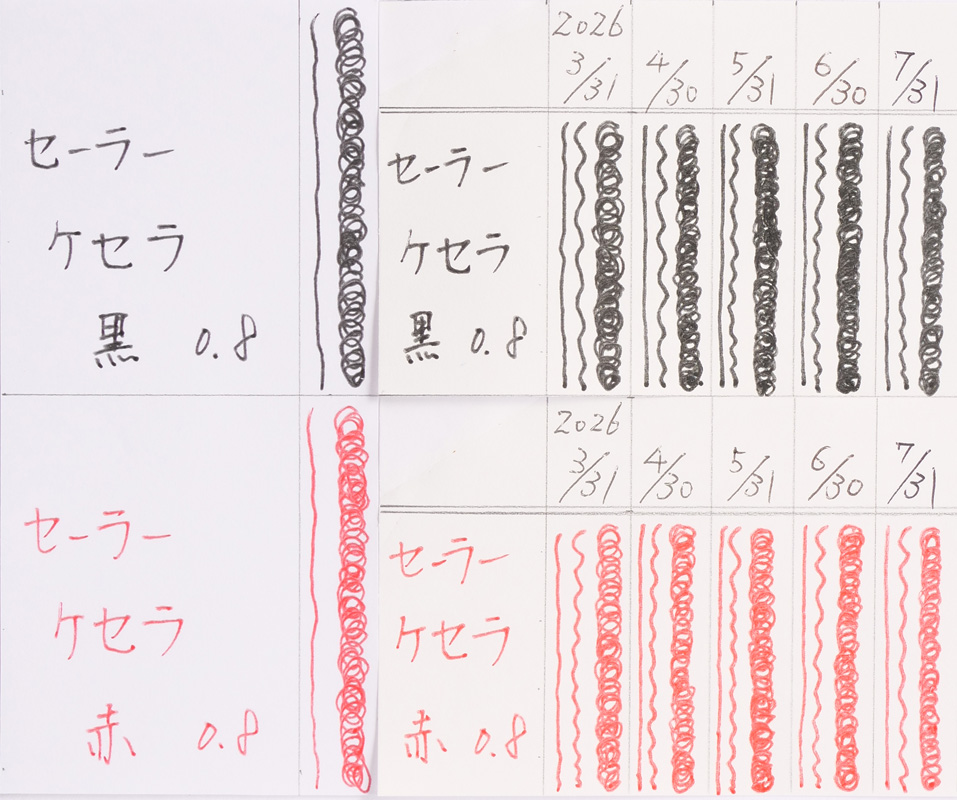 セーラー
ケセラ
黒 0.8
2026
3/31 4/30 5/31 6/30 7/31
セーラー
ケセラ
黒 0.8
セーラー
ケセラ
赤 0.8
2026
3/31 4/30 5/31 6/30 7/31
セーラー
ケセラ
赤 0.8